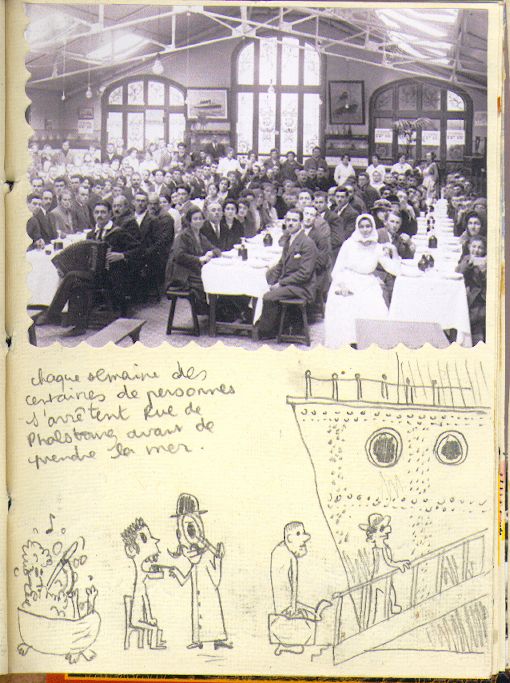 chaque semaine des
centaines de personnes
s'arrêtent Rue de
Phalsbourg avant de
prendre la mer.